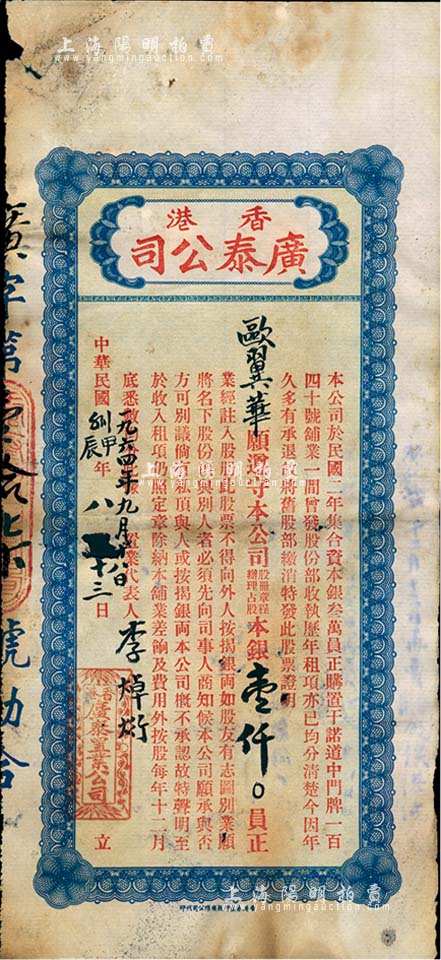 上海陽明拍賣
www.yangmingauction.com
香港
廣泰公司
本公司於民國二年集合資本銀叁萬員正購置干諾道中門牌一百
四十號舖業一間曾發股份部收執歷年租項亦已均分清楚今因年
久多有承退茲將舊股部繳消特發此股票證明
歐翼華願遵守本公司股關章程辦理占股本銀壹仟0員正
業經註入股部此股票不得向外人按揭銀両如股友有志圖別業願
將名下股份讓與別人者必須先向司事人商知候本公司願承與否
方可別議倘有私頂與人或按揭銀両本公司概不承認故特聲明至
於收入租項仍照定章除納本舖業差餉及費用外按股每年十二月
底悉數
置業代表人 李焯衍
一九六四年九月十八日
中華民國 甲辰年八月十三日 立
香港
廣泰置業公司
廣字第壹拾 號
上海陽明拍賣
www.yangmingauction.com